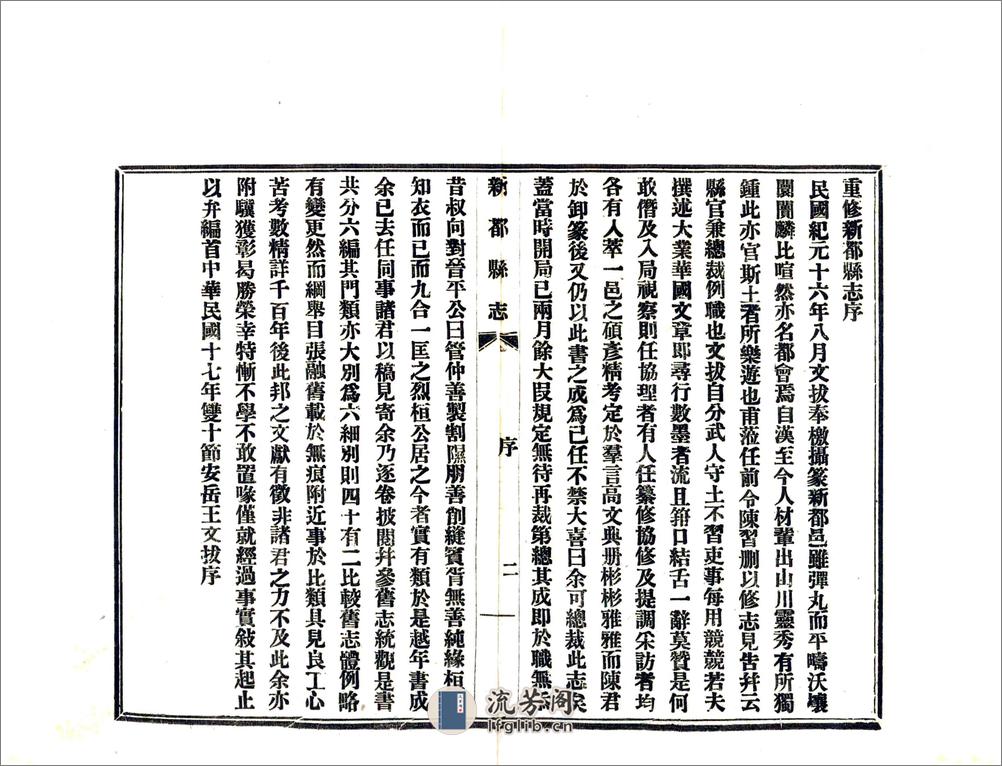 重修新都縣志序
民國紀元十六年八月文拔奉檄攝篆新都邑雖彈丸而平疇沃壤
閭闠麟比喧然亦名都會焉自漢至今人材輩出山川靈秀有所獨
鍾此亦官斯土者所樂遊也甫蒞任前令陳習刪以修志見告幷云
縣官兼總裁例職也文拔自分武人守土不習吏事每用競競若夫
撰述大業華國文章即尋行數墨者流且箝口結舌一辭莫贊是何
敢僭及入局視察則任協理者有人任纂修協修及提調采訪者均
各有人萃一邑之碩彥精考定於羣言高文典册彬彬雅雅而陳君
於卸篆後又仍以此書之成爲己任不禁大喜曰余可總裁此志矣
蓋當時開局已兩月餘大叚規定無待再裁第總其成即於職無
新都縣志 序 二
昔叔向對晉平公曰管仲善製割隰朋善削縫賓胥無善純緣桓
知衣而已而九合一匡之烈桓公居之今者實有類於是越年書成
余已去任同事諸君以稿見寄余乃逐卷披閱幷參舊志統觀是書
共分六編其門類亦大別爲六細別則四十有二比較舊志體例略
有變更然而綱舉目張融舊載於無痕附近事於比類具見良工心
苦考數精詳千百年後此邦之文獻有徵非諸君之力不及此余亦
附驥獲彰曷勝榮幸特慚不學不敢置喙僅就經過事實敍其起止
以弁編首中華民國十七年雙十節安岳王文拔序
流芳阁
lfglib.cn